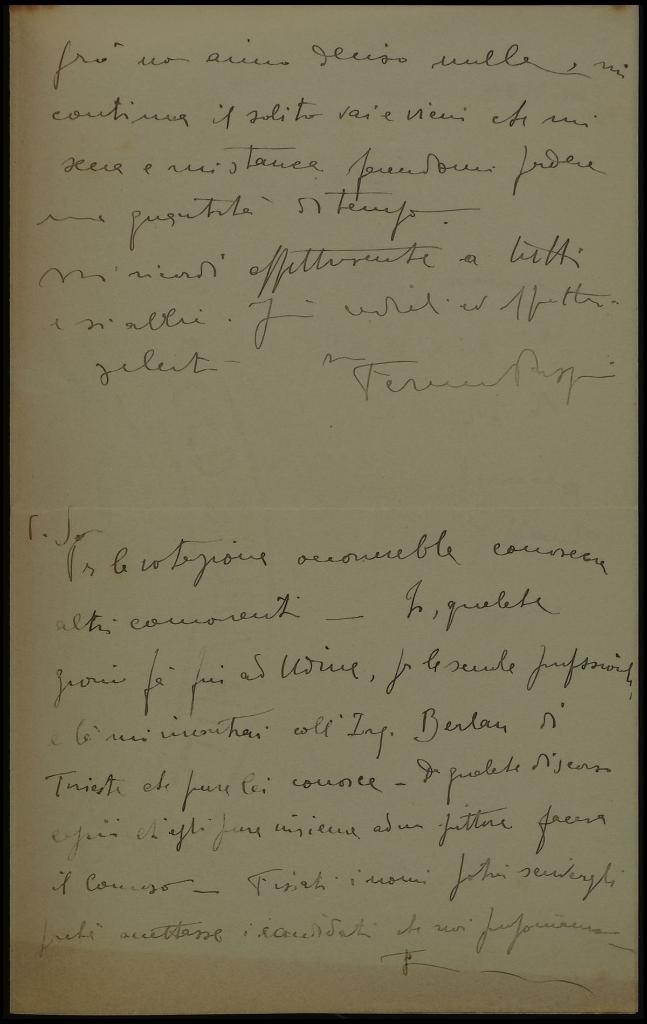 però non hanno deciso nulla, e mi
continua il solito vai e vieni che mi
secca e mi stanca facendomi perdere
una quantità di tempo.
Mi ricordi affettuosamente a tutti
e si abbia
saluti
P. S.
Per la votazione occorrerebbe conoscere
altri concorrenti — Io, qualche
giorno fa fui ad Udine, per le scuole professionali,
e là mi incontrai coll'Ing. Berlam di
Trieste che pure lei conosce — Da qualche discorso
capii ch'egli pure insieme ad un pittore faceva
il Concorso — Fissati i nomi potrei scrivergli
perché mettesse i candidati che noi proponiamo —